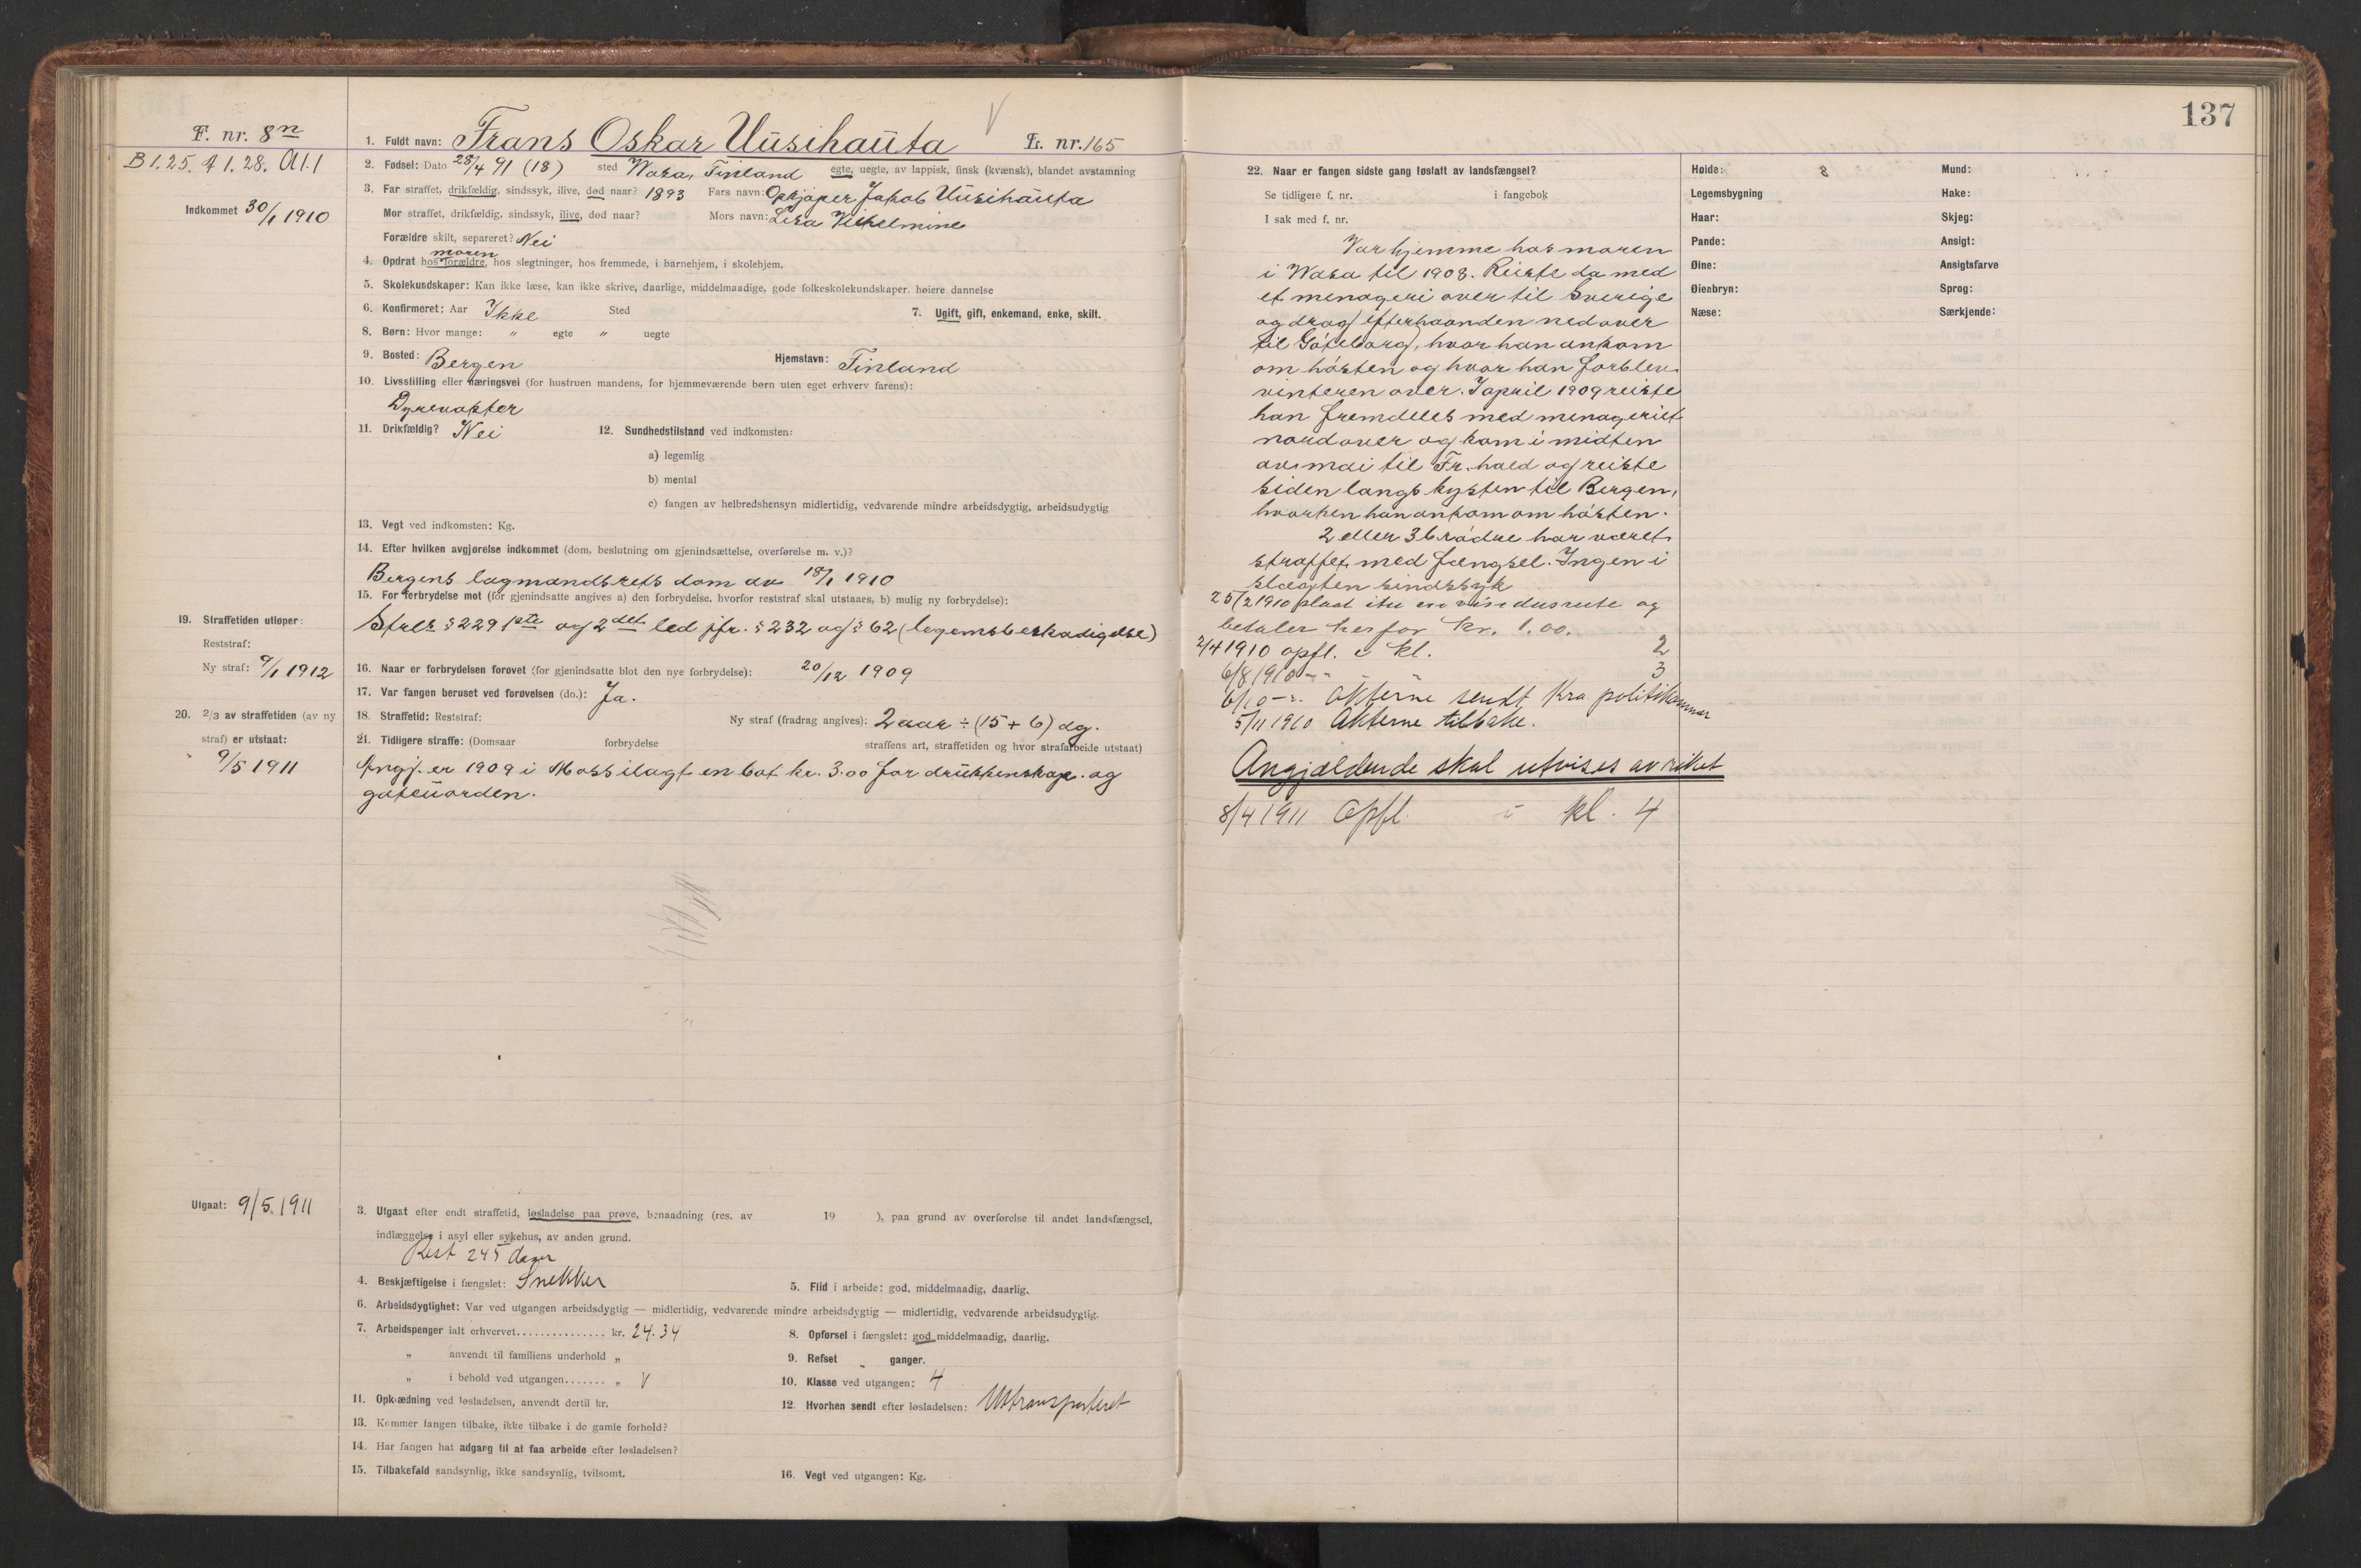 F. nr. 8n
B 1.25. A 1.28. Al.1
Indkommet 30/1 1910
1. Fuldt navn: Frans Oskar Uusihauta L. nr. 165
2. Fødsel: Dato 28/4 91 (18) sted Wasa, Finland egte, uegte, av lappisk, finsk (kvænsk), blandet avstamning
3. Far straffet, drikfældig, sindssyk, ilive, død naar? 1893 Fars navn: Opkjøper Jakob Uusihauta
Mor straffet, drikfældig, sindssyk, ilive, død naar? Mors navn: Lisa Vilhelmine
Forældre skilt, separeret? Nei
moren
4. Opdrat hos forældre, hos slegtninger, hos fremmede, i barnehjem, i skolehjem.
5. Skolekundskaper: Kan ikke læse, kan ikke skrive, daarlige, middelmaadige, gode folkeskolekundskaper. høiere dannelse
6. Konfirmeret: Aar Ikke Sted 7. Ugift, gift, enkemand, enke, skilt.
8. Børn: Hvor mange: " egte " uegte
9. Bosted: Bergen Hjemstavn: Finland
10. Livsstilling eller næringsvei (for hustruen mandens, for hjemmeværende børn uten eget erhverv farens):
Dyrevokter
11. Drikfældig? Nei 12. Sundhedstilstand ved indkomsten:
a) legemlig
b) mental
c) fangen av helbredshensyn midlertidig, vedvarende mindre arbeidsdygtig, arbeidsudygtig
13. Vegt ved indkomsten: Kg.
14. Efter hvilken avgjørelse indkommet (dom, beslutning om gjenindsættelse, overførelse m. v.)?
Bergens lagmandsrets dom av 18/1 1910
15. For forbrydelse mot (for gjenindsatte angives a) den forbrydelse, hvorfor reststraf skal utstaaes, b) mulig ny forbrydelse):
Strl. § 229 1ste og 2det led jfr. § 232 og § 62 (legemsbeskadigelse)
19. Straffetiden utløper:
Reststraf:
Ny straf: 9/1 1912
16. Naar er forbrydelsen forøvet (for gjenindsatte blot den nye forbrydelse): 20/12 1909
17. Var fangen beruset ved forøvelsen (do.): Ja.
20. 2/3 av straffetiden (av ny
straf) er utstaat:
9/5 1911
18. Straffetid: Reststraf: Ny straf (fradrag angives): 2 aar ÷ (15 + 6) dg.
21. Tidligere straffe: (Domsaar forbrydelse straffens art, straffetiden og hvor strafarbeide utstaat)
Angj. er 1909 i Moss ilagt en bot kr. 3.00 for drukkenskap og
gateuorden.
Utgaat: 9/5 1911
3. Utgaat efter endt straffetid, løsladelse paa prøve, benaadning (res. av 19 ), paa grund av overførelse til andet landsfængsel,
indlæggelse i asyl eller sykehus, av anden grund.
Rest 245 dager
4. Beskjæftigelse i fængslet: Snekker 5. Flid i arbeide: god, middelmaadig, daarlig.
6. Arbeidsdygtighet: Var ved utgangen arbeidsdygtig — midlertidig, vedvarende mindre arbeidsdygtig — midlertidig, vedvarende arbeidsudygtig.
7. Arbeidspenger ialt erhvervet............... kr. 24.34 8. Opførsel i fængslet: god middelmaadig, daarlig.
" anvendt til familiens underhold " 9. Refset " ganger.
" i behold ved utgangen....... " V 10. Klasse ved utgangen: 4
11. Opklædning ved løsladelsen, anvendt dertil kr. 12. Hvorhen sendt efter løsladelsen: Uttransporteret
13. Kommer fangen tilbake, ikke tilbake i de gamle forhold?
14. Har fangen hat adgang til at faa arbeide efter løsladelsen?
15. Tilbakefald sandsynlig, ikke sandsynlig, tvilsomt. 16. Vegt ved utgangen: Kg.
137
22. Naar er fangen sidste gang løslatt av landsfængsel?
Se tidligere f. nr. i fangebok
I sak med f. nr.
Var hjemme hos moren
i Wasa til 1908. Reiste da med
et menageri over til Sverige
og drog efterhaanden nedover
til Göteborg, hvor han ankom
om hösten og hvor han forblev
vinteren over. I april 1909 reiste
han fremdeles med menageriet
nordover og kom i midten
av mai til Fr.hald og reiste
siden langs kysten til Bergen,
hvorhen han ankom om hösten.
2 eller 3 brödre har været
straffet med fængsel. Ingen i
slægten sindssyk
25/2 1910 slaat itu en vindusrute og
betaler herfor kr. 1.00.
2/4 1910 opfl. i kl. 2
6/8 1910 - " 3
6/10 -". Akterne sendt Kra politikammer
5/11 1910 Akterne tilbake.
Angjældende skal utvises av riket
8/4 1911 Opfl. i kl. 4
Høide: 8
Legemsbygning
Haar:
Pande:
Øine:
Øienbryn:
Næse:
Mund:
Hake:
Skjeg:
Ansigt:
Ansigtsfarve
Sprog:
Særkjende: